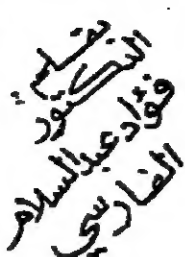 بقلم
الدكتور
فؤاد عبد السلام
الفارسي